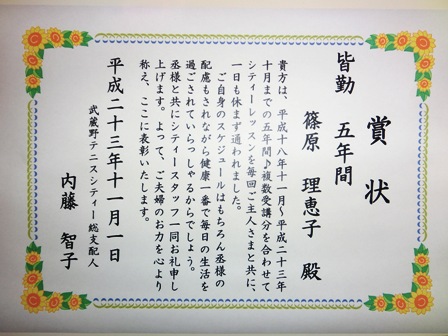 賞状
皆勤 五年間
篠原 理恵子 殿
貴方は、平成十八年十一月～平成二十三年
十月までの五年間♪複数受講分を合わせて
シティーレッスンを毎回ご主人さまと共に、
一日も休まず通われました。
ご自身のスケジュールはもちろん丞様の
配慮もされながら健康一番で毎日の生活を
過ごされていらっしゃるからでしょう。
丞様と共にシティースタッフ一同お礼申し
上げます。よって、ご夫婦のお力を心より
称え、ここに表彰いたします。
平成二十三年十一月一日
武蔵野テニスシティー総支配人
内藤 智子